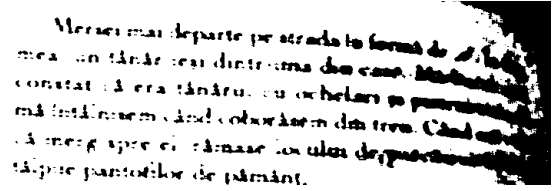 Mersei mai departe pe strada în formă de
mea un tânăr ieși dintr-una din case.
constat că era tânărul cu ochelari și
mă întâlnisem când coborâsem din tren. Când
că merg spre el rămase locului de
tălpile pantofilor de pământ.